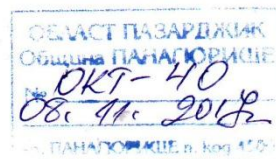 ОБЛАСТ ПАЗАРДЖИК
Община ПАНАГЮРИЩЕ
№ ОКТ-40
08. 11. 2017г.
ПАНАГЮРИЩЕ п. код 4500